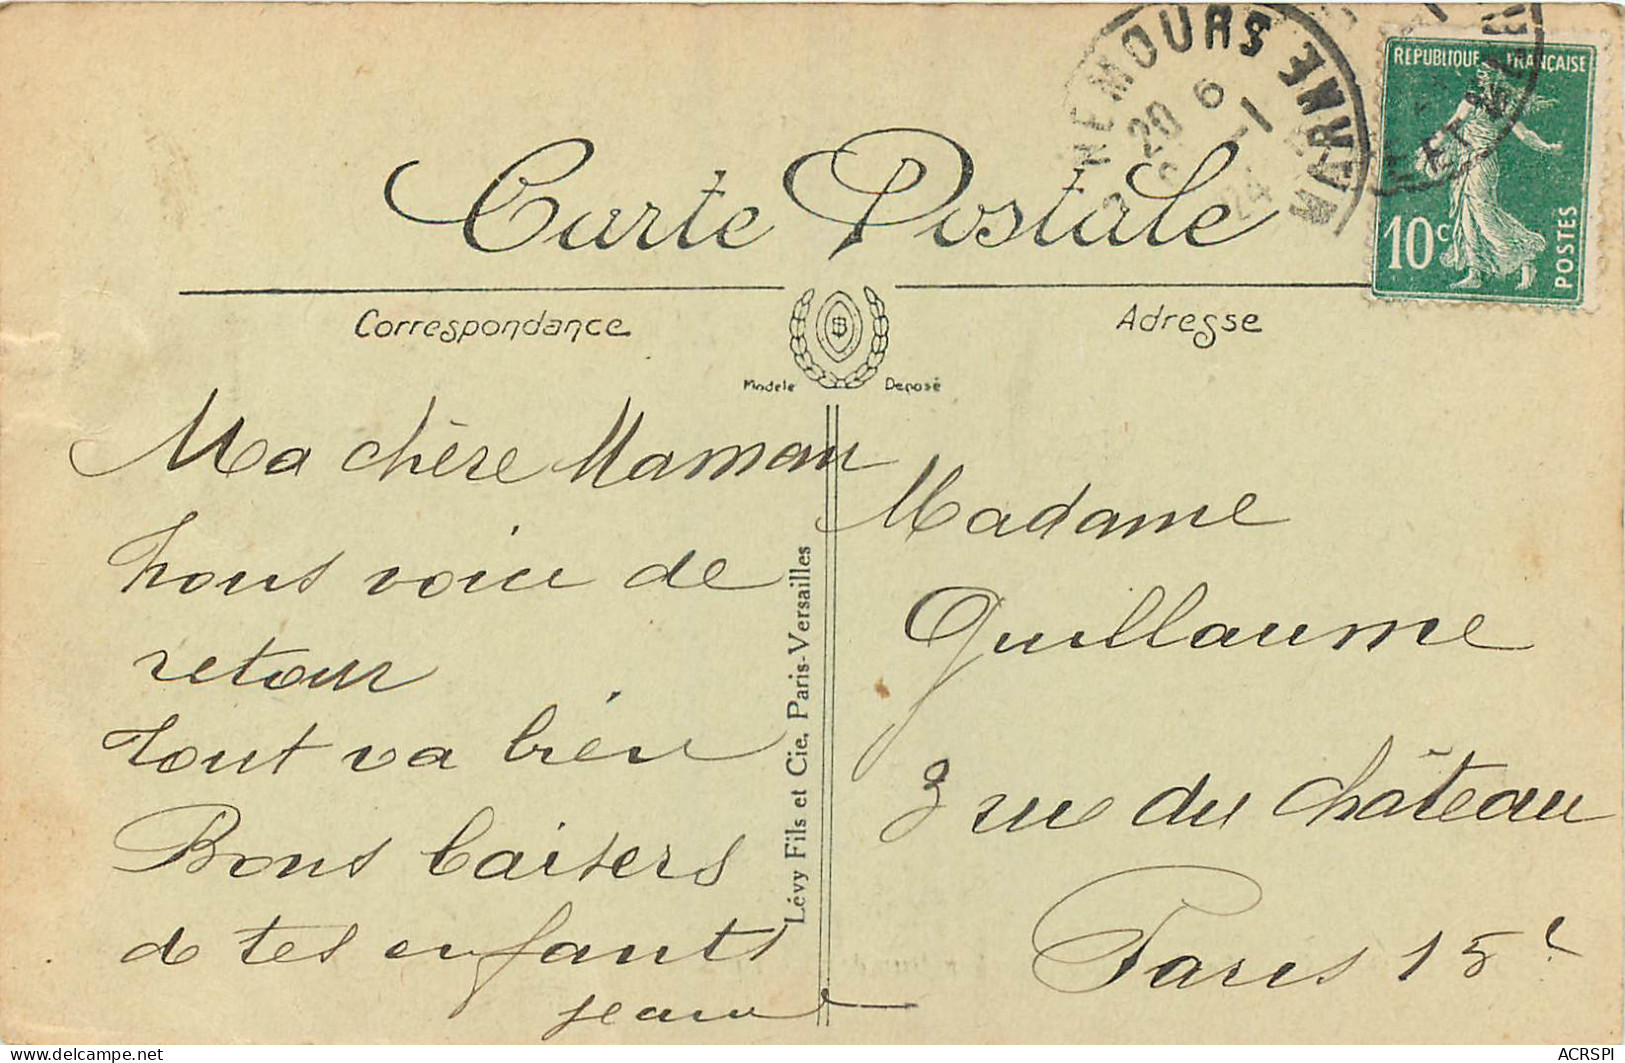 NEMOURS
SNE ET MARNE
20 6
-1
24
REPUBLIQUE FRANÇAISE
10c
POSTES
Carte Postale
Correspondance
Adresse
Modèle Déposé
Ma chère Maman
nous voici de
retour
tout va bien
Bons baisers
de tes enfants
Jean
Lévy Fils et Cie, Paris-Versailles
Madame
Guillaume
3 rue du Château
Paris 15e
ACRSPI